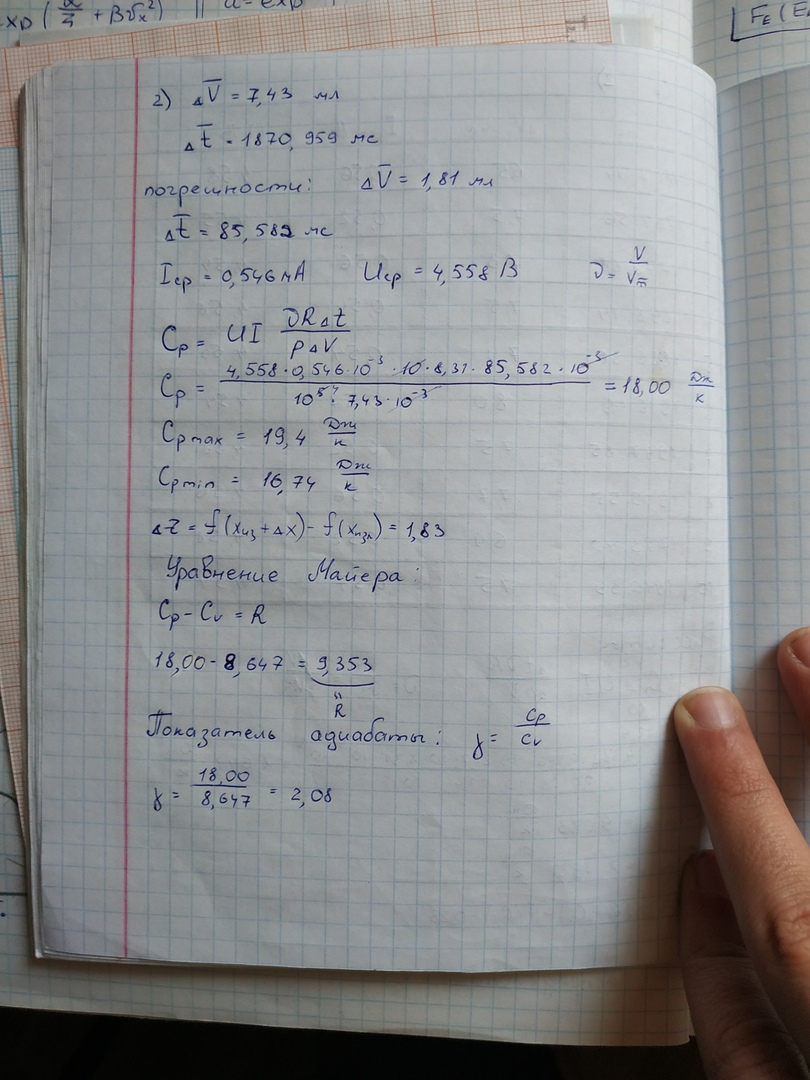 xp (α/4 + βσx²) || α = exp
FE (E
2) ΔV̅ = 7,43 мл
Δt̅ = 1870,959 мс
погрешности: ΔV̅ = 1,81 мл
Δt̅ = 85,582 мс
Iср = 0,546 мА Uср = 4,558 В ν = V/Vm
Cp = UI νRΔt/pΔV
Cp = 4,558·0,546·10⁻³·10·8,31·85,582·10⁻³ / 10⁵·7,43·10⁻³ = 18,00 Дж/К
Cp max = 19,4 Дж/К
Cp min = 16,74 Дж/К
Δz = f(xиз + Δx) - f(xизм) = 1,83
Уравнение Майера:
Cp - Cv = R
18,00 - 8,647 = 9,353
" R
Показатель адиабаты: γ = Cp/Cv
γ = 18,00/8,647 = 2,08